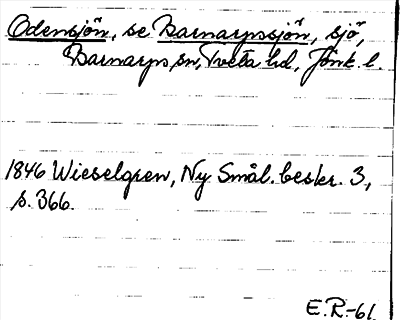 Odensjön, se Barnarpssjön, sjö,
Barnarps sn, Tveta hd, Jönk. l.
1846 Wieselgren, Ny Smål. beskr. 3,
s. 366.
E.R.-61.